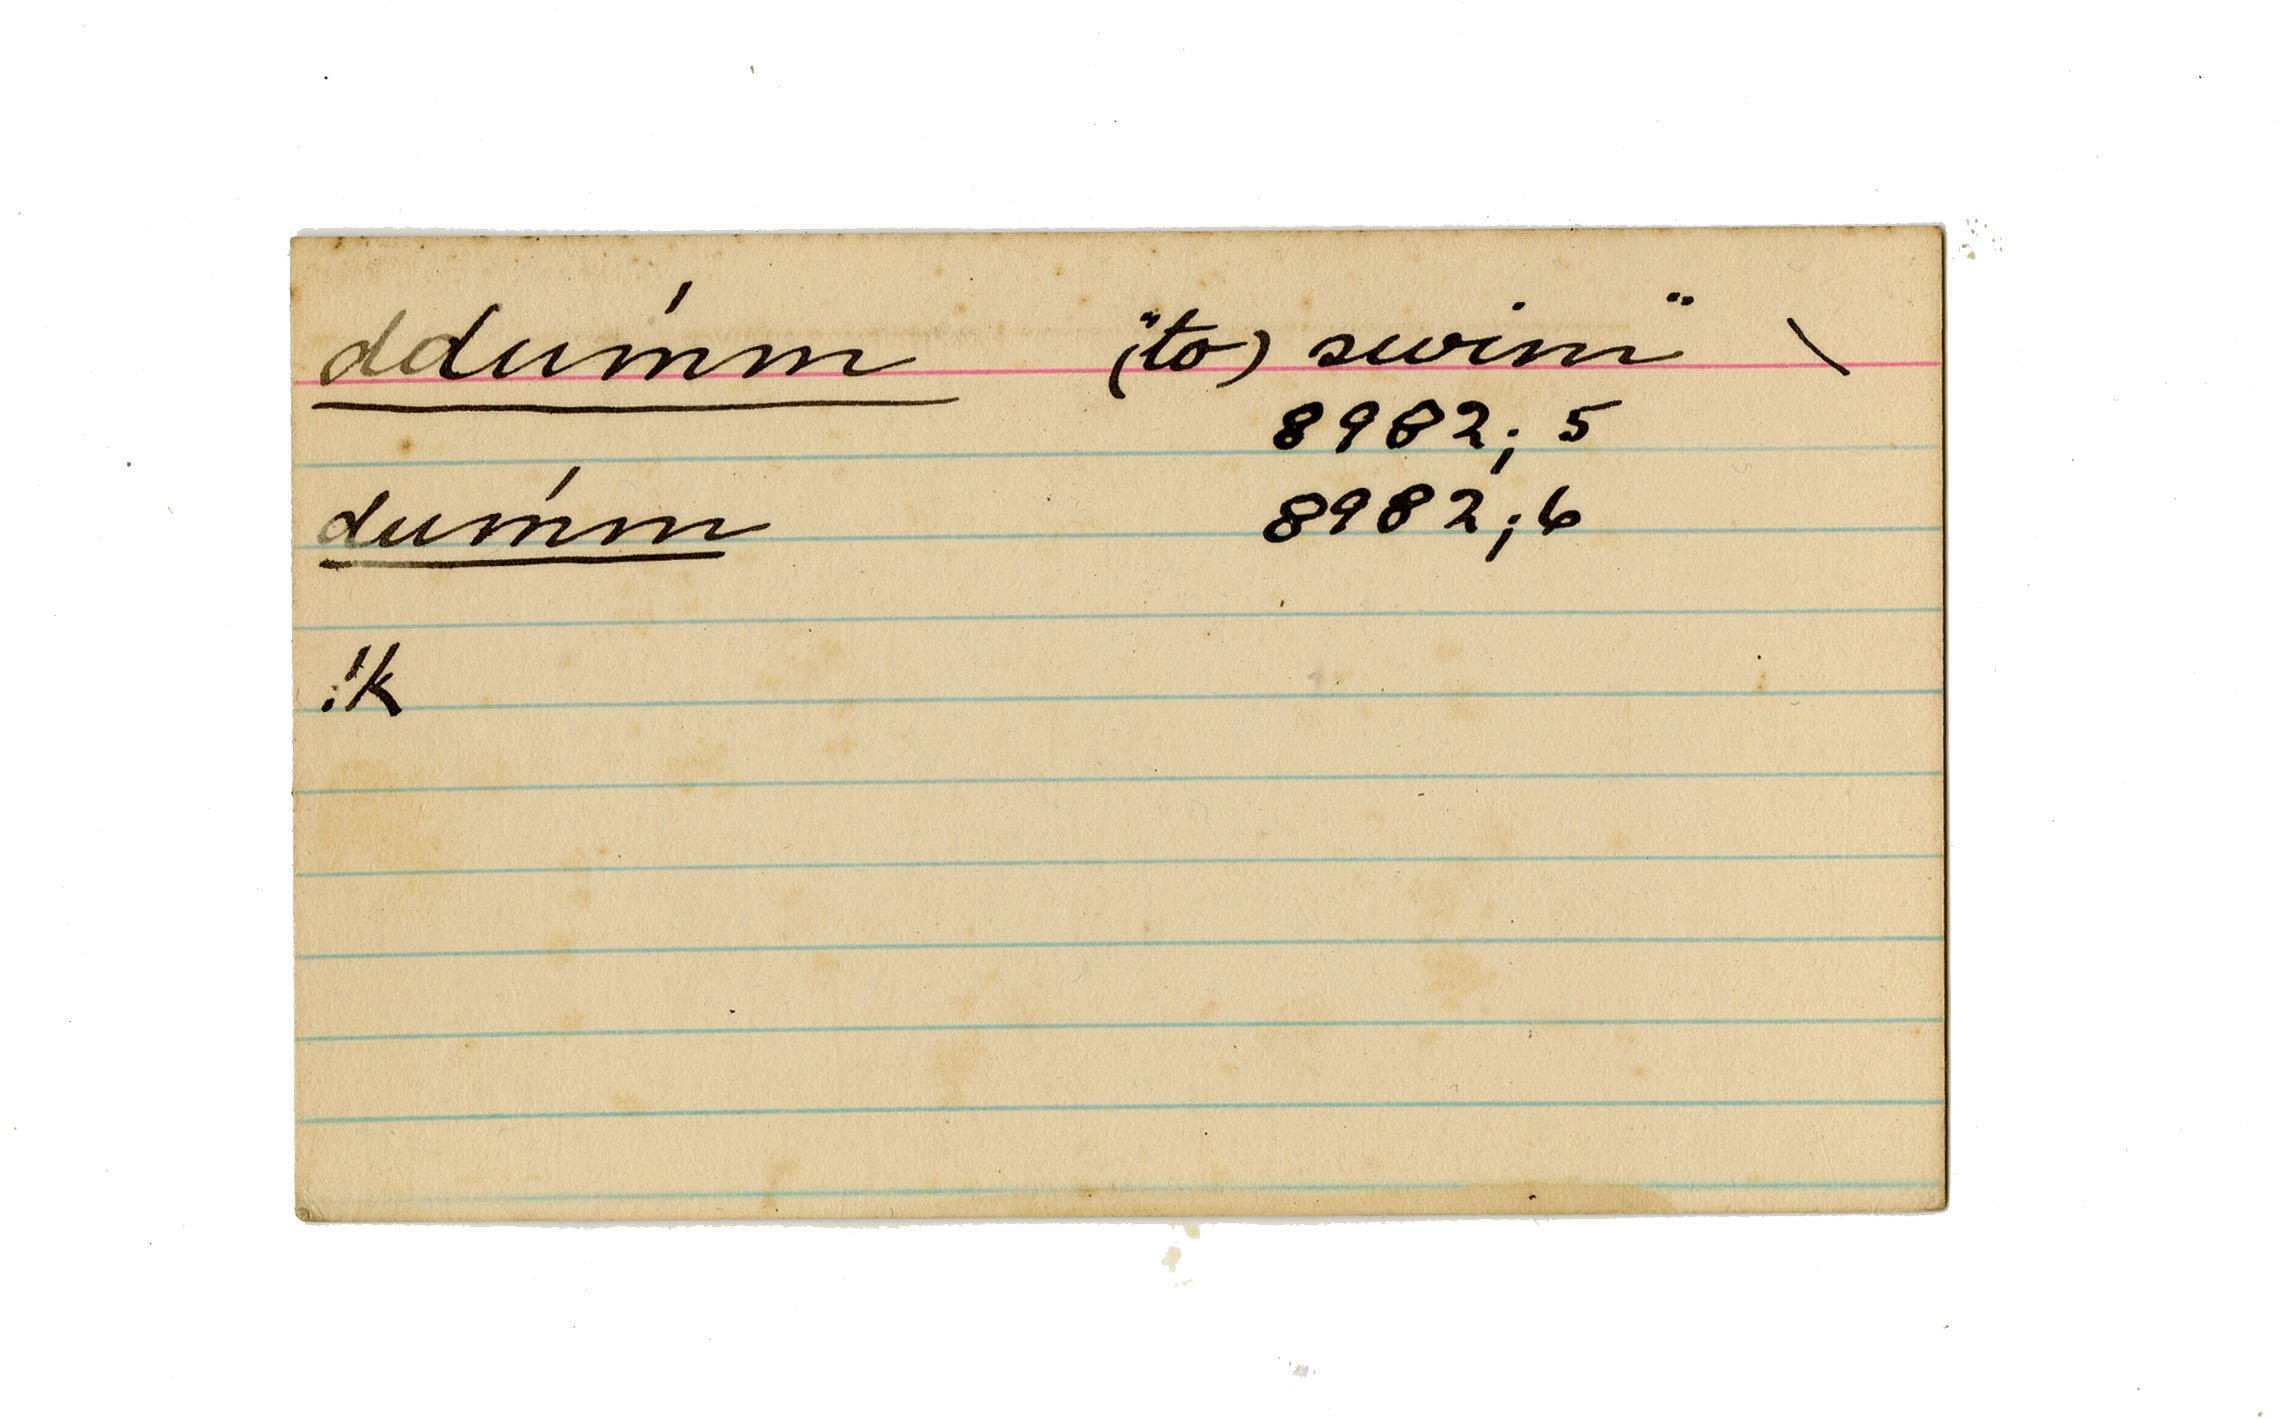 ddúmm ("to) swim" \
8982; 5
dúmm 8982; 6
!k